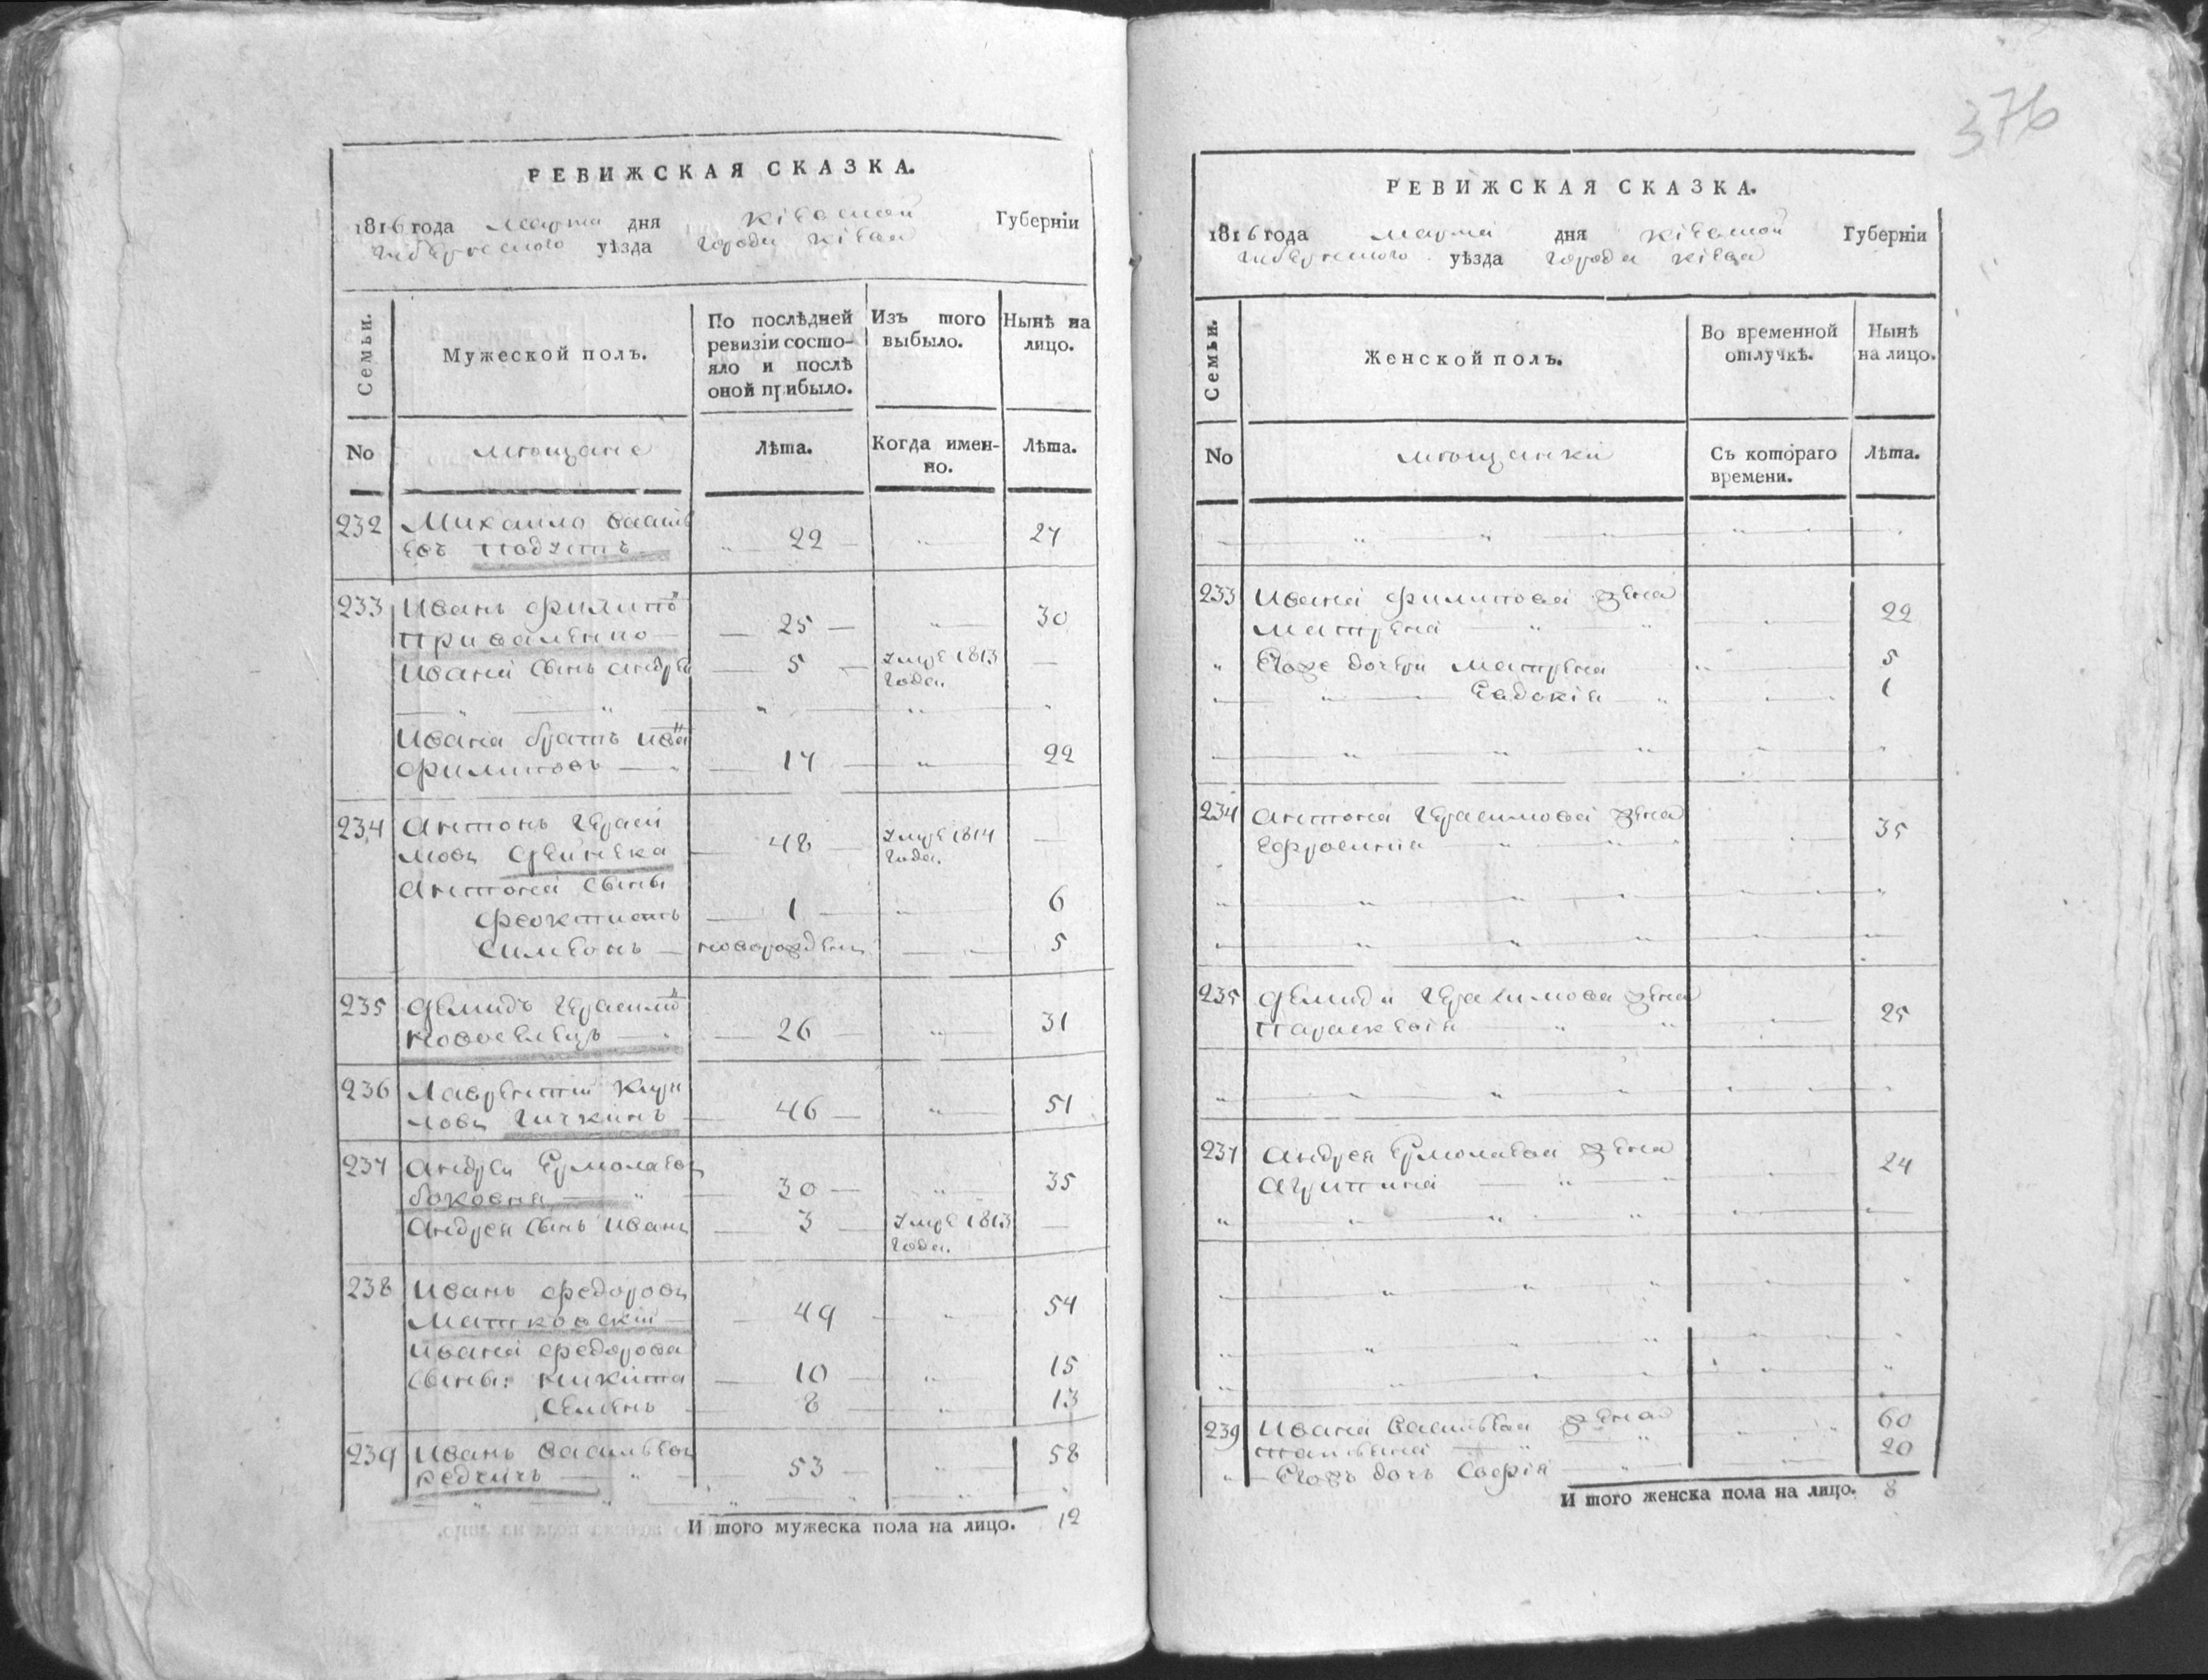 РЕВИЖСКАЯ СКАЗКА.
1816 года марта дня Кіевской Губерніи
Губернского уѣзда города Кіева
Семьи.
Мужеской полъ.
По послѣдней ревизіи состояло и послѣ оной прибыло.
Изъ того выбыло.
Нынѣ на лицо.
No
мѣщане
Лѣта.
Когда именно.
Лѣта.
232 Михаило Василь
евъ 22 27
233 Иванъ Филипо
Приваленко 25 30
Ивана сынъ Андрей 5 Умре 1813
года.
Ивана братъ Ива
Филиповъ 17 22
234 Антонъ Гераси
мовъ Дейнека 48 Умре 1814
года.
Антона сыны
Феоктистъ 1 6
Симеонъ новорожденъ 5
235 Демидъ Герасимо
Новоселецъ 26 31
236 Лаврентій Кири
ловъ Гичкинъ 46 51
237 Андрей Ермолаевъ
Боковня 30 35
Андрея сынъ Иванъ 3 Умре 1813
года.
238 Иванъ Федоровъ
Матковскій 49 54
Ивана Федорова
сыны: Никита 10 15
Семенъ 8 13
239 Иванъ Васильевъ
Редчичъ 53 58
И того мужеска пола на лицо. 12
376
РЕВИЖСКАЯ СКАЗКА.
1816 года марта дня Кіевской Губерніи
Губернского уѣзда города Кіева
Семьи.
Женской полъ.
Во временной отлучкѣ.
Нынѣ на лицо.
No
мѣщанки
Съ котораго времени.
Лѣта.
233 Ивана Филипова жена
Матрена 22
Егоже дочери Матрена 5
Евдокія 1
234 Антона Герасимова жена
Ефросинія 35
235 Демида Герасимова жена
Параскевія 25
237 Андрея Ермолаева жена
Агрипина 24
239 Ивана Васильева жена 60
Татьяна 20
Егожъ дочь Софія
И того женска пола на лицо. 8